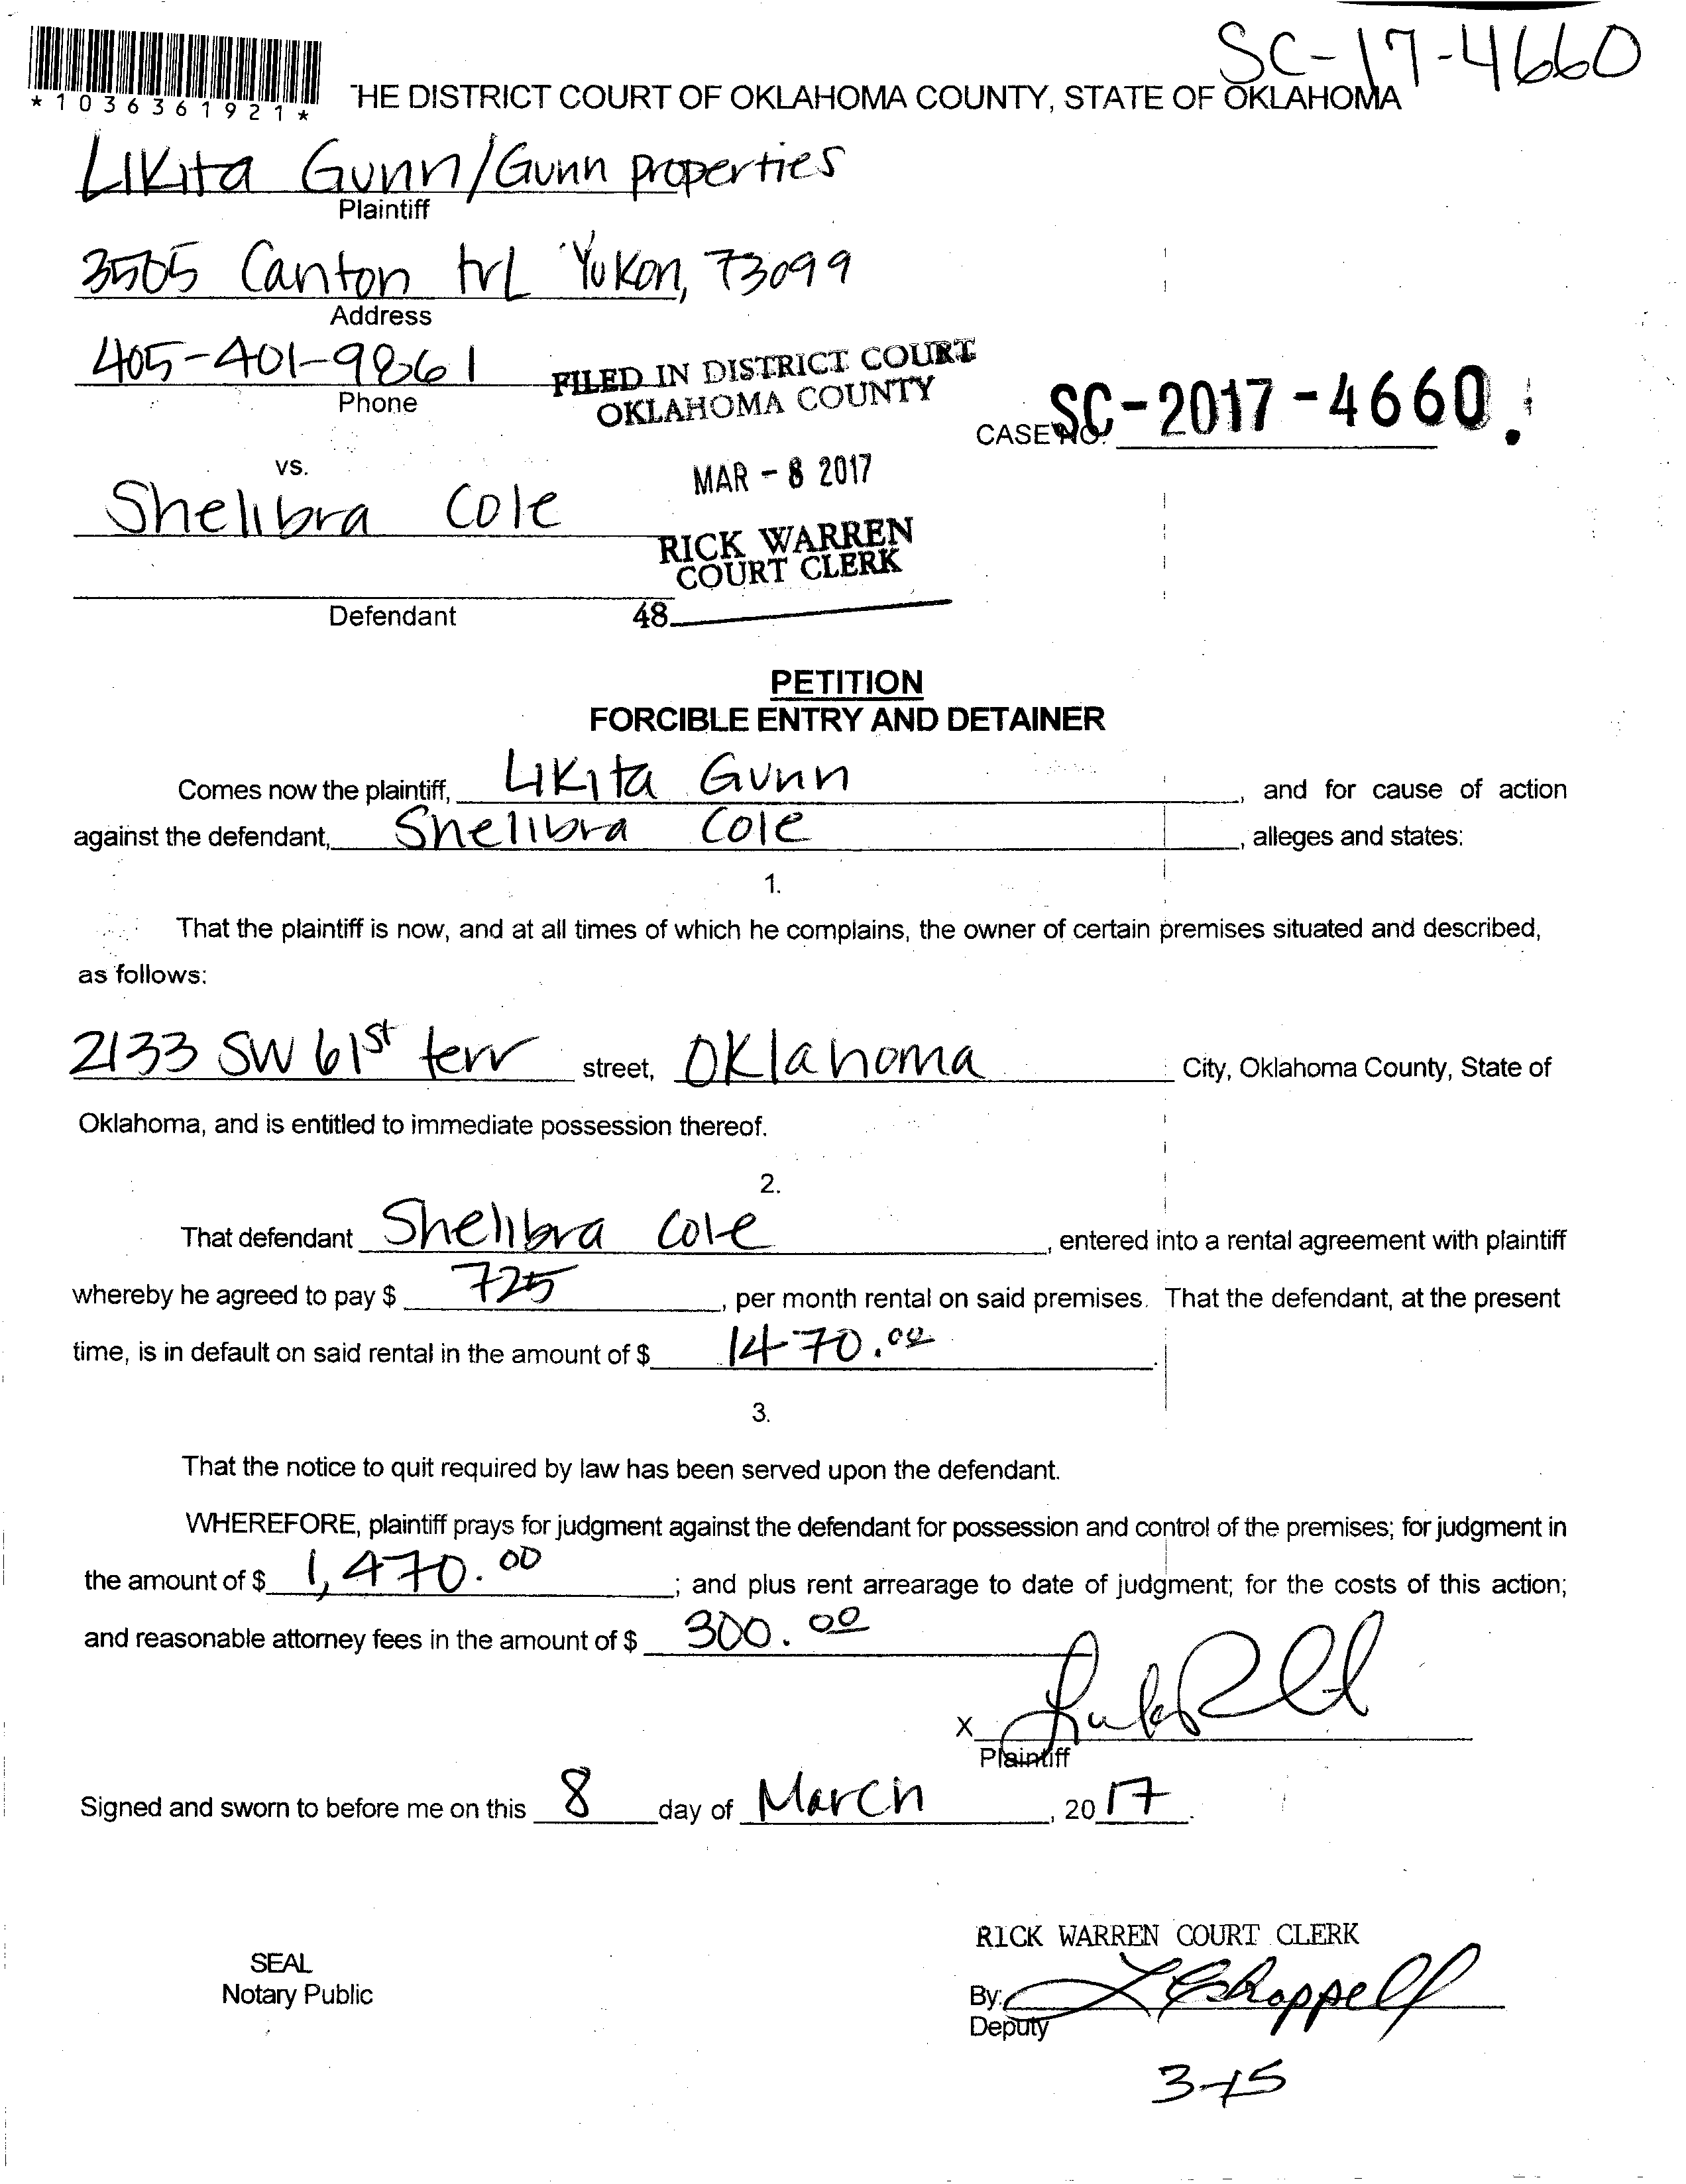 SC-17-4660
*1036361921*
THE DISTRICT COURT OF OKLAHOMA COUNTY, STATE OF OKLAHOMA
Likita Gunn/Gunn properties
Plaintiff
3505 Canton trL Yukon, 73099
Address
405-401-9861
Phone
FILED IN DISTRICT COURT
OKLAHOMA COUNTY
CASE NO. SC-2017-4660.
vs.
MAR - 8 2017
Shelibra Cole
RICK WARREN
COURT CLERK
Defendant
48
PETITION
FORCIBLE ENTRY AND DETAINER
Comes now the plaintiff, Likita Gunn, and for cause of action
against the defendant, Shelibra Cole, alleges and states:
1.
That the plaintiff is now, and at all times of which he complains, the owner of certain premises situated and described,
as follows:
2133 SW 61st terr street, Oklahoma City, Oklahoma County, State of
Oklahoma, and is entitled to immediate possession thereof.
2.
That defendant Shelibra Cole, entered into a rental agreement with plaintiff
whereby he agreed to pay $ 725, per month rental on said premises. That the defendant, at the present
time, is in default on said rental in the amount of $ 1470.00.
3.
That the notice to quit required by law has been served upon the defendant.
WHEREFORE, plaintiff prays for judgment against the defendant for possession and control of the premises; for judgment in
the amount of $ 1,470.00; and plus rent arrearage to date of judgment; for the costs of this action;
and reasonable attorney fees in the amount of $ 300.00
X
Plaintiff
Signed and sworn to before me on this 8 day of March, 2017.
RICK WARREN COURT CLERK
SEAL
Notary Public
By:
Deputy
3-15